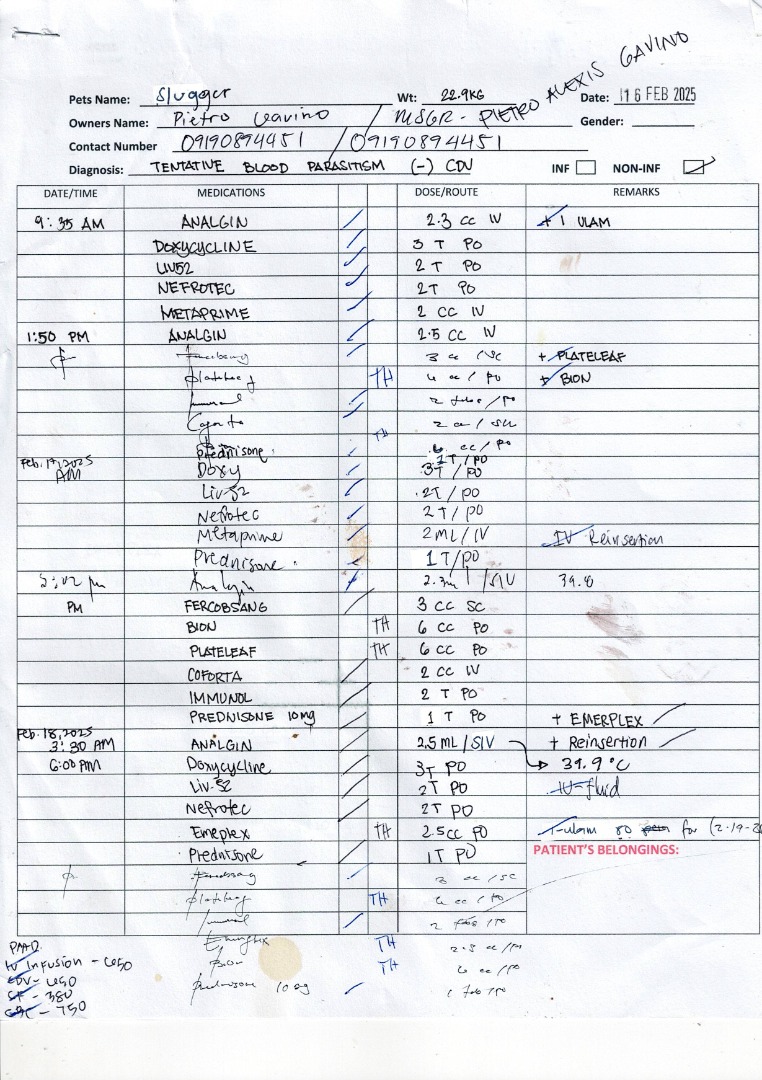 PIETRO ALEXIS GAVINO
Pets Name: Slugger Wt: 22.9KG Date: 16 FEB 2025
Owners Name: Pietro Gavino / MSGR - Gender:
Contact Number 09190894451 / 09190894451
Diagnosis: TENTATIVE BLOOD PARASITISM (-) CDV INF NON-INF
DATE/TIME MEDICATIONS DOSE/ROUTE REMARKS
9:35 AM ANALGIN 2.3 cc IV + 1 ULAM
DOXYCYCLINE 3 T PO
LIV52 2 T PO
NEFROTEC 2T PO
METAPRIME 2 CC IV
1:50 PM ANALGIN 2.5 CC IV
3 cc / SC + PLATELEAF
TH / PO + BION
2 tabs / PO
2 cc /
TH 6 cc / PO
Prednisone 1T / PO
Feb. 17, 2025 AM Doxy 3T / PO
Liv-52 2T / PO
Nefrotec 2T / PO
Metaprime 2ML / IV IV Reinsertion
Prednisone 1T/PO
Analgin 2.3ml / SIV 39.8
PM FERCOBSANG 3 CC SC
BION TH 6 CC PO
PLATELEAF TH 6 CC PO
COFORTA 2 CC IV
IMMUNOL 2 T PO
PREDNISONE 10mg 1 T PO + EMERPLEX
Feb. 18, 2025
3:30 AM ANALGIN 2.5 ML / SIV + Reinsertion
6:00 AM Doxycycline 3T PO 39.9°C
Liv-52 2T PO IV-fluid
Nefrotec 2T PO
Emeplex TH 2.5cc PO 1-ulam for (2-19-2
Prednisone 1T PO PATIENT'S BELONGINGS:
3 cc / SC
TH / PO
2 tabs / PO
TH 2.5 cc / PO
PAID Bion TH / PO
IV Infusion - 
CDV - 
Prednisone 10 mg 1 tab / PO
- 380
CBC - 750